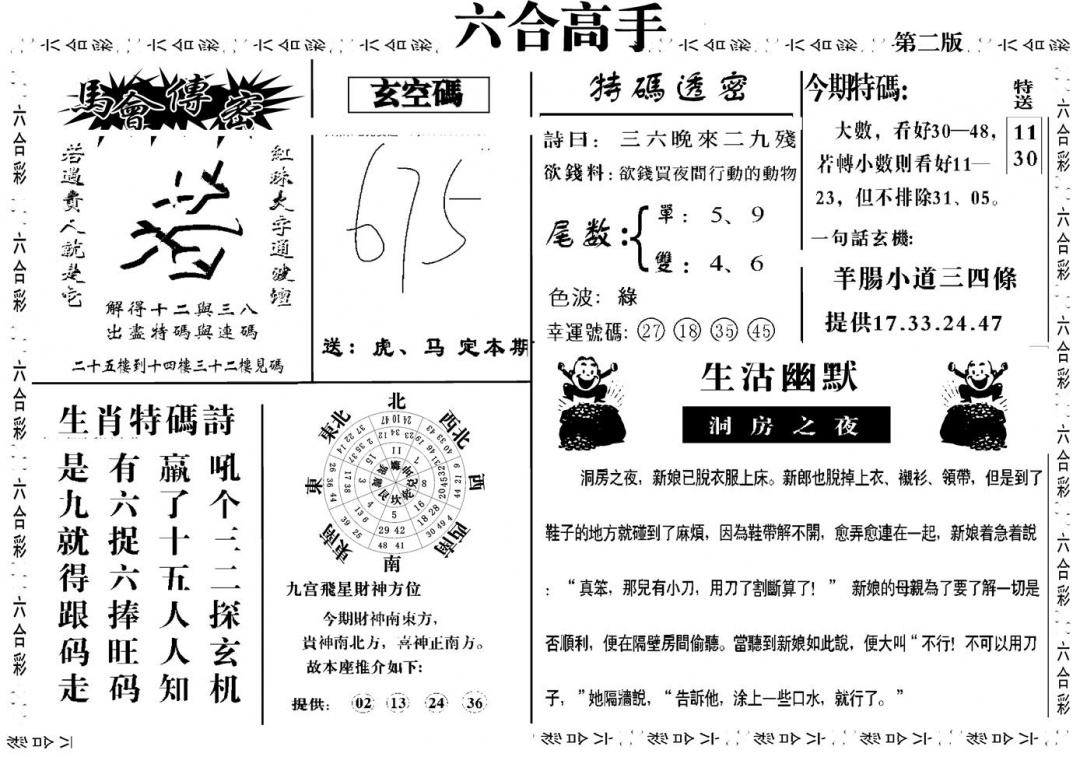 六合高手
第二版
馬會傳密
若遇貴人就是它
紅珠大字通波壇
解得十二與三八
出盡特碼與連碼
二十五樓到十四樓三十二樓見碼
玄空碼
675
送：虎、马 定本期
特碼透密
詩曰：三六晚來二九殘
欲錢料：欲錢買夜間行動的動物
尾数：
單：5、9
雙：4、6
色波：綠
幸運號碼：27 18 35 45
今期特碼:
特送
11
30
大數，看好30—48，
若轉小數則看好11—
23，但不排除31、05。
一句話玄機:
羊腸小道三四條
提供17.33.24.47
生肖特碼詩
吼个三二探玄机
赢了十五人人知
有六捉六捧旺码
是九就得跟码走
北
西北
西
西南
南
東南
東
東北
九宫飛星財神方位
今期財神南東方，
貴神南北方，喜神正南方。
故本座推介如下:
提供: 02 13 24 36
生活幽默
洞房之夜
洞房之夜，新娘已脫衣服上床。新郎也脫掉上衣、襯衫、領帶，但是到了
鞋子的地方就碰到了麻煩，因為鞋帶解不開，愈弄愈連在一起，新娘着急着說
：“真笨，那兒有小刀，用刀了割斷算了！” 新娘的母親為了要了解一切是
否順利，便在隔壁房間偷聽。當聽到新娘如此說，便大叫“不行！不可以用刀
子，”她隔牆說，“告訴他，涂上一些口水，就行了。”
六合彩